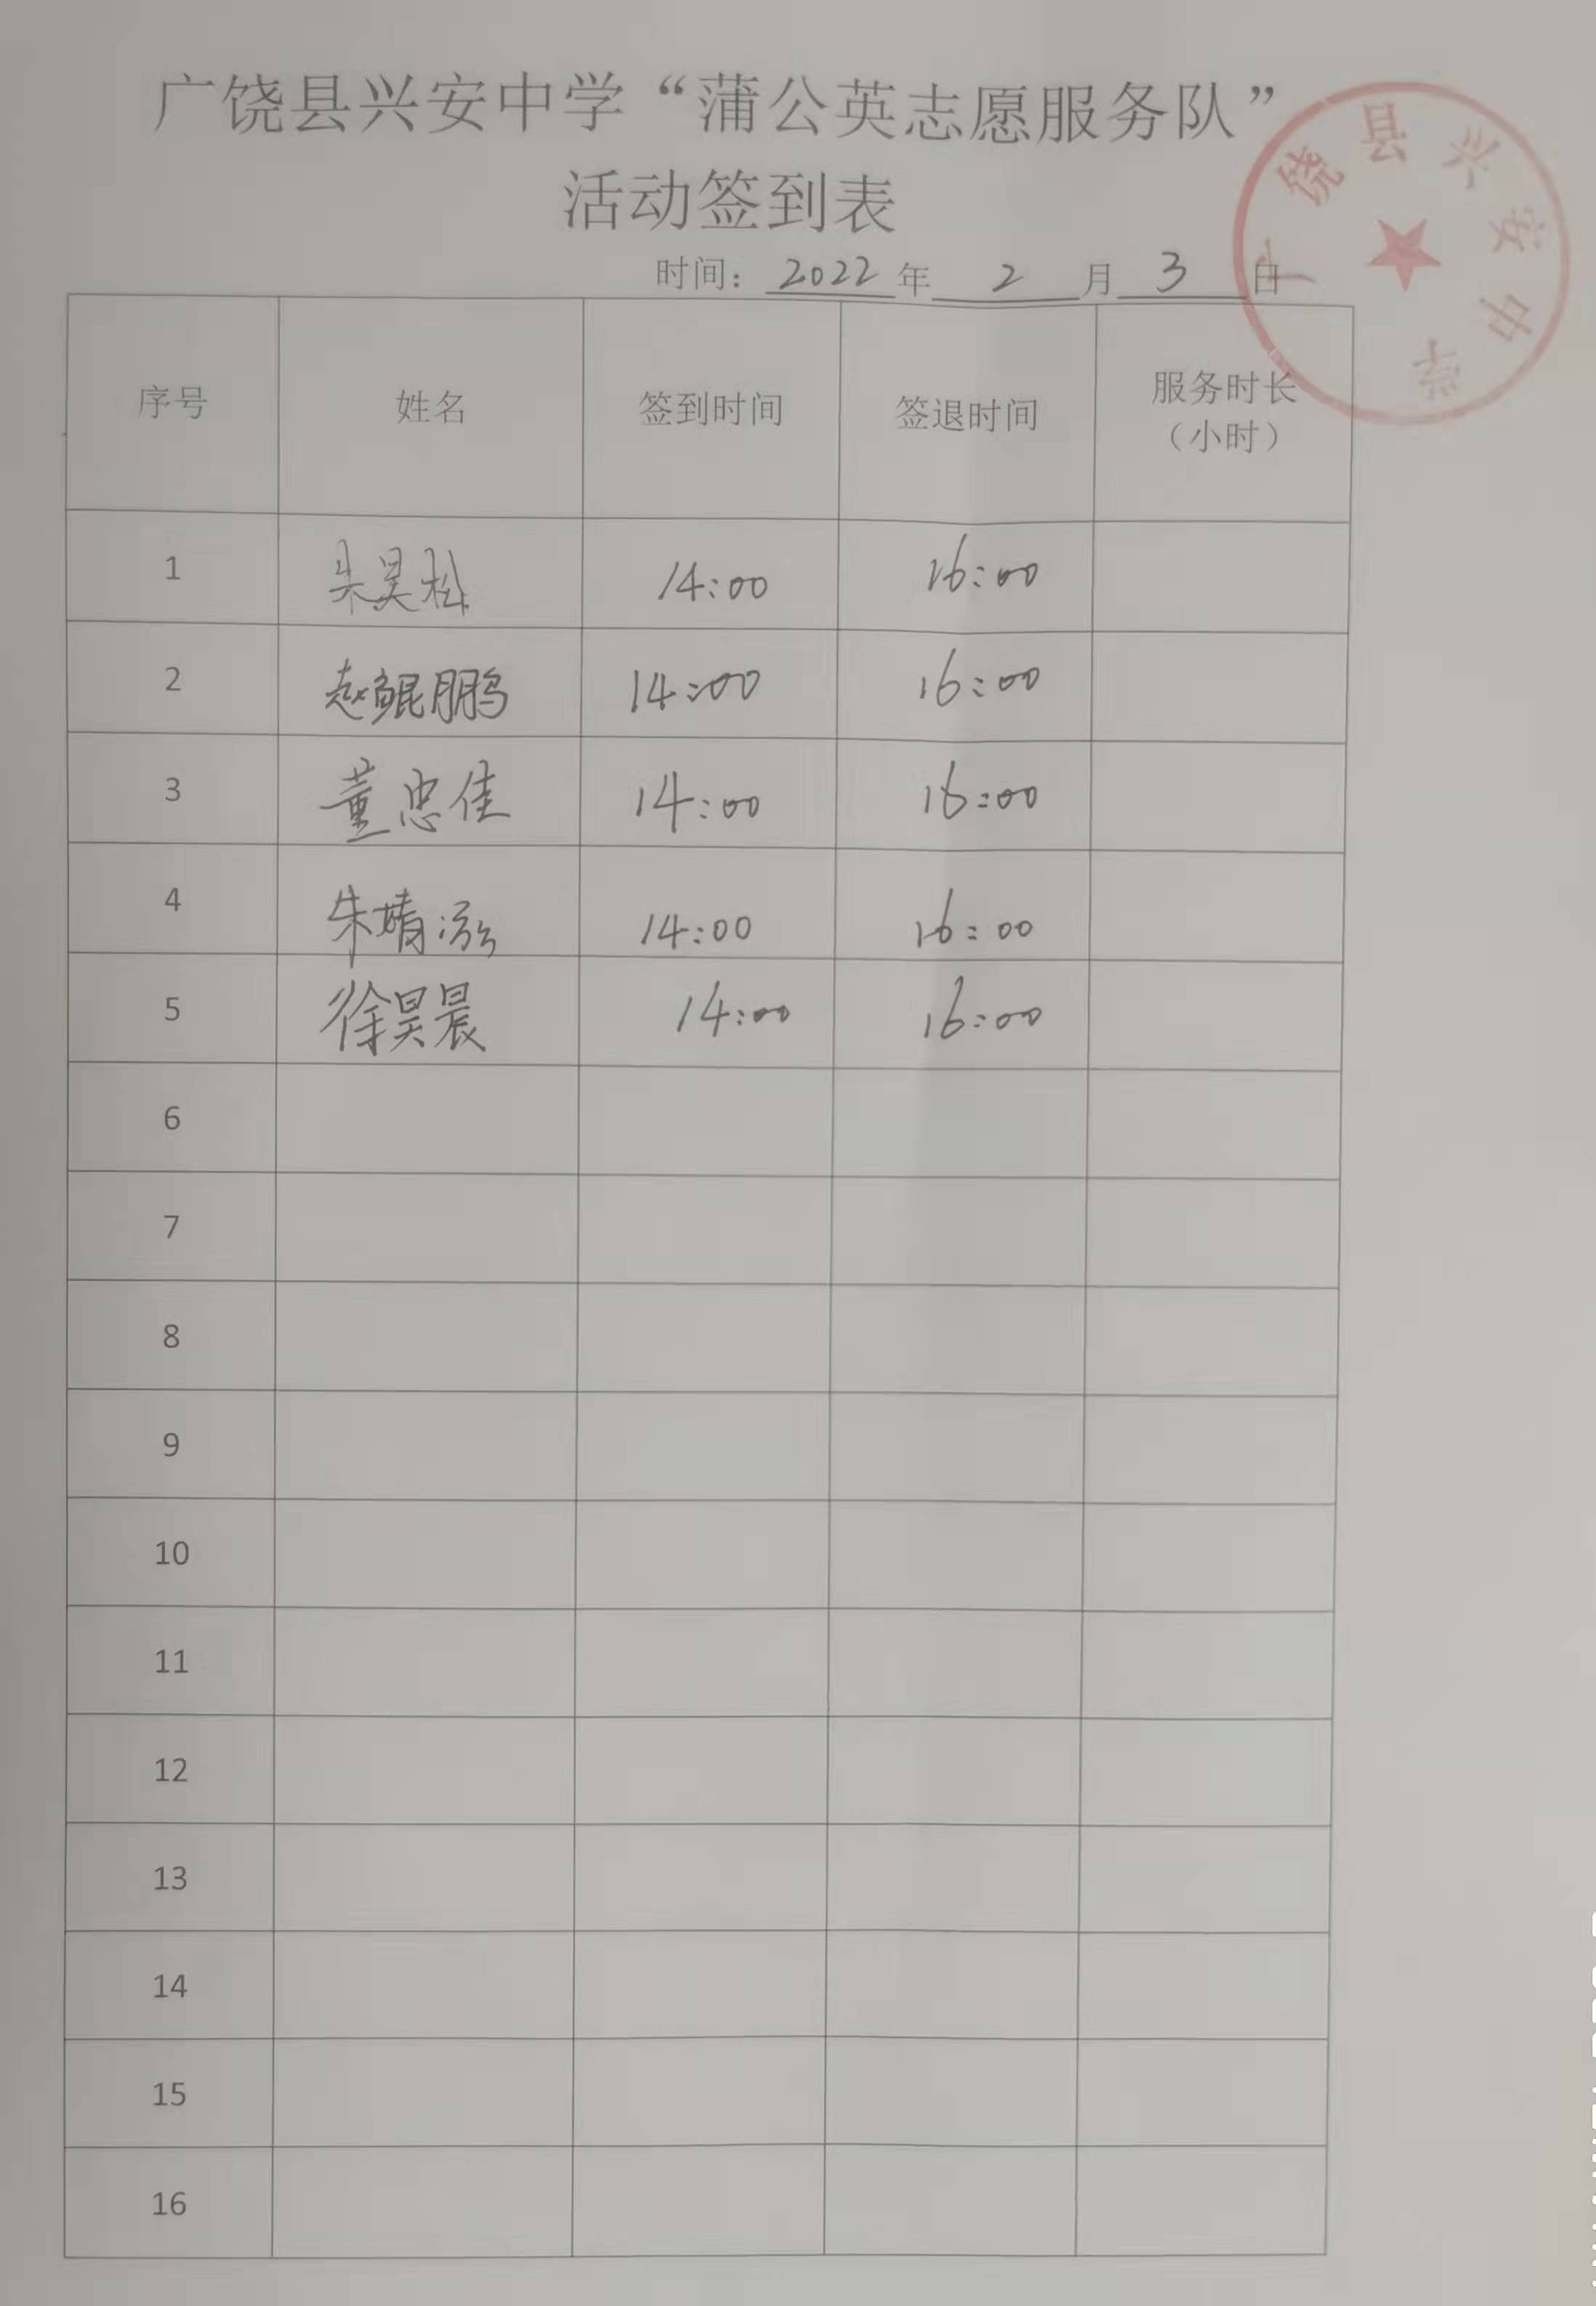 广饶县兴安中学“蒲公英志愿服务队”
活动签到表
时间：2022年2月3日
广饶县兴安中学
序号 姓名 签到时间 签退时间 服务时长（小时）
1 朱昊松 14:00 16:00
2 赵鲲鹏 14:00 16:00
3 董忠佳 14:00 16:00
4 朱婧泓 14:00 16:00
5 徐昊晨 14:00 16:00
6
7
8
9
10
11
12
13
14
15
16